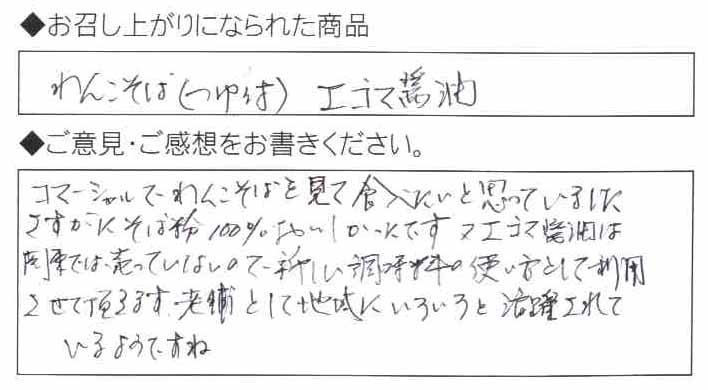 ◆お召し上がりになられた商品
わんこそば(つゆ付) エゴマ醤油
◆ご意見・ご感想をお書きください。
コマーシャルでわんこそばを見て食べたいと思っていました
さすがにそば粉100%おいしかったです 又エゴマ醤油は
関東では売っていないので新しい調味料の使い方として利用
させて頂きます 老舗として地域にいろいろと活躍されて
いるようですね